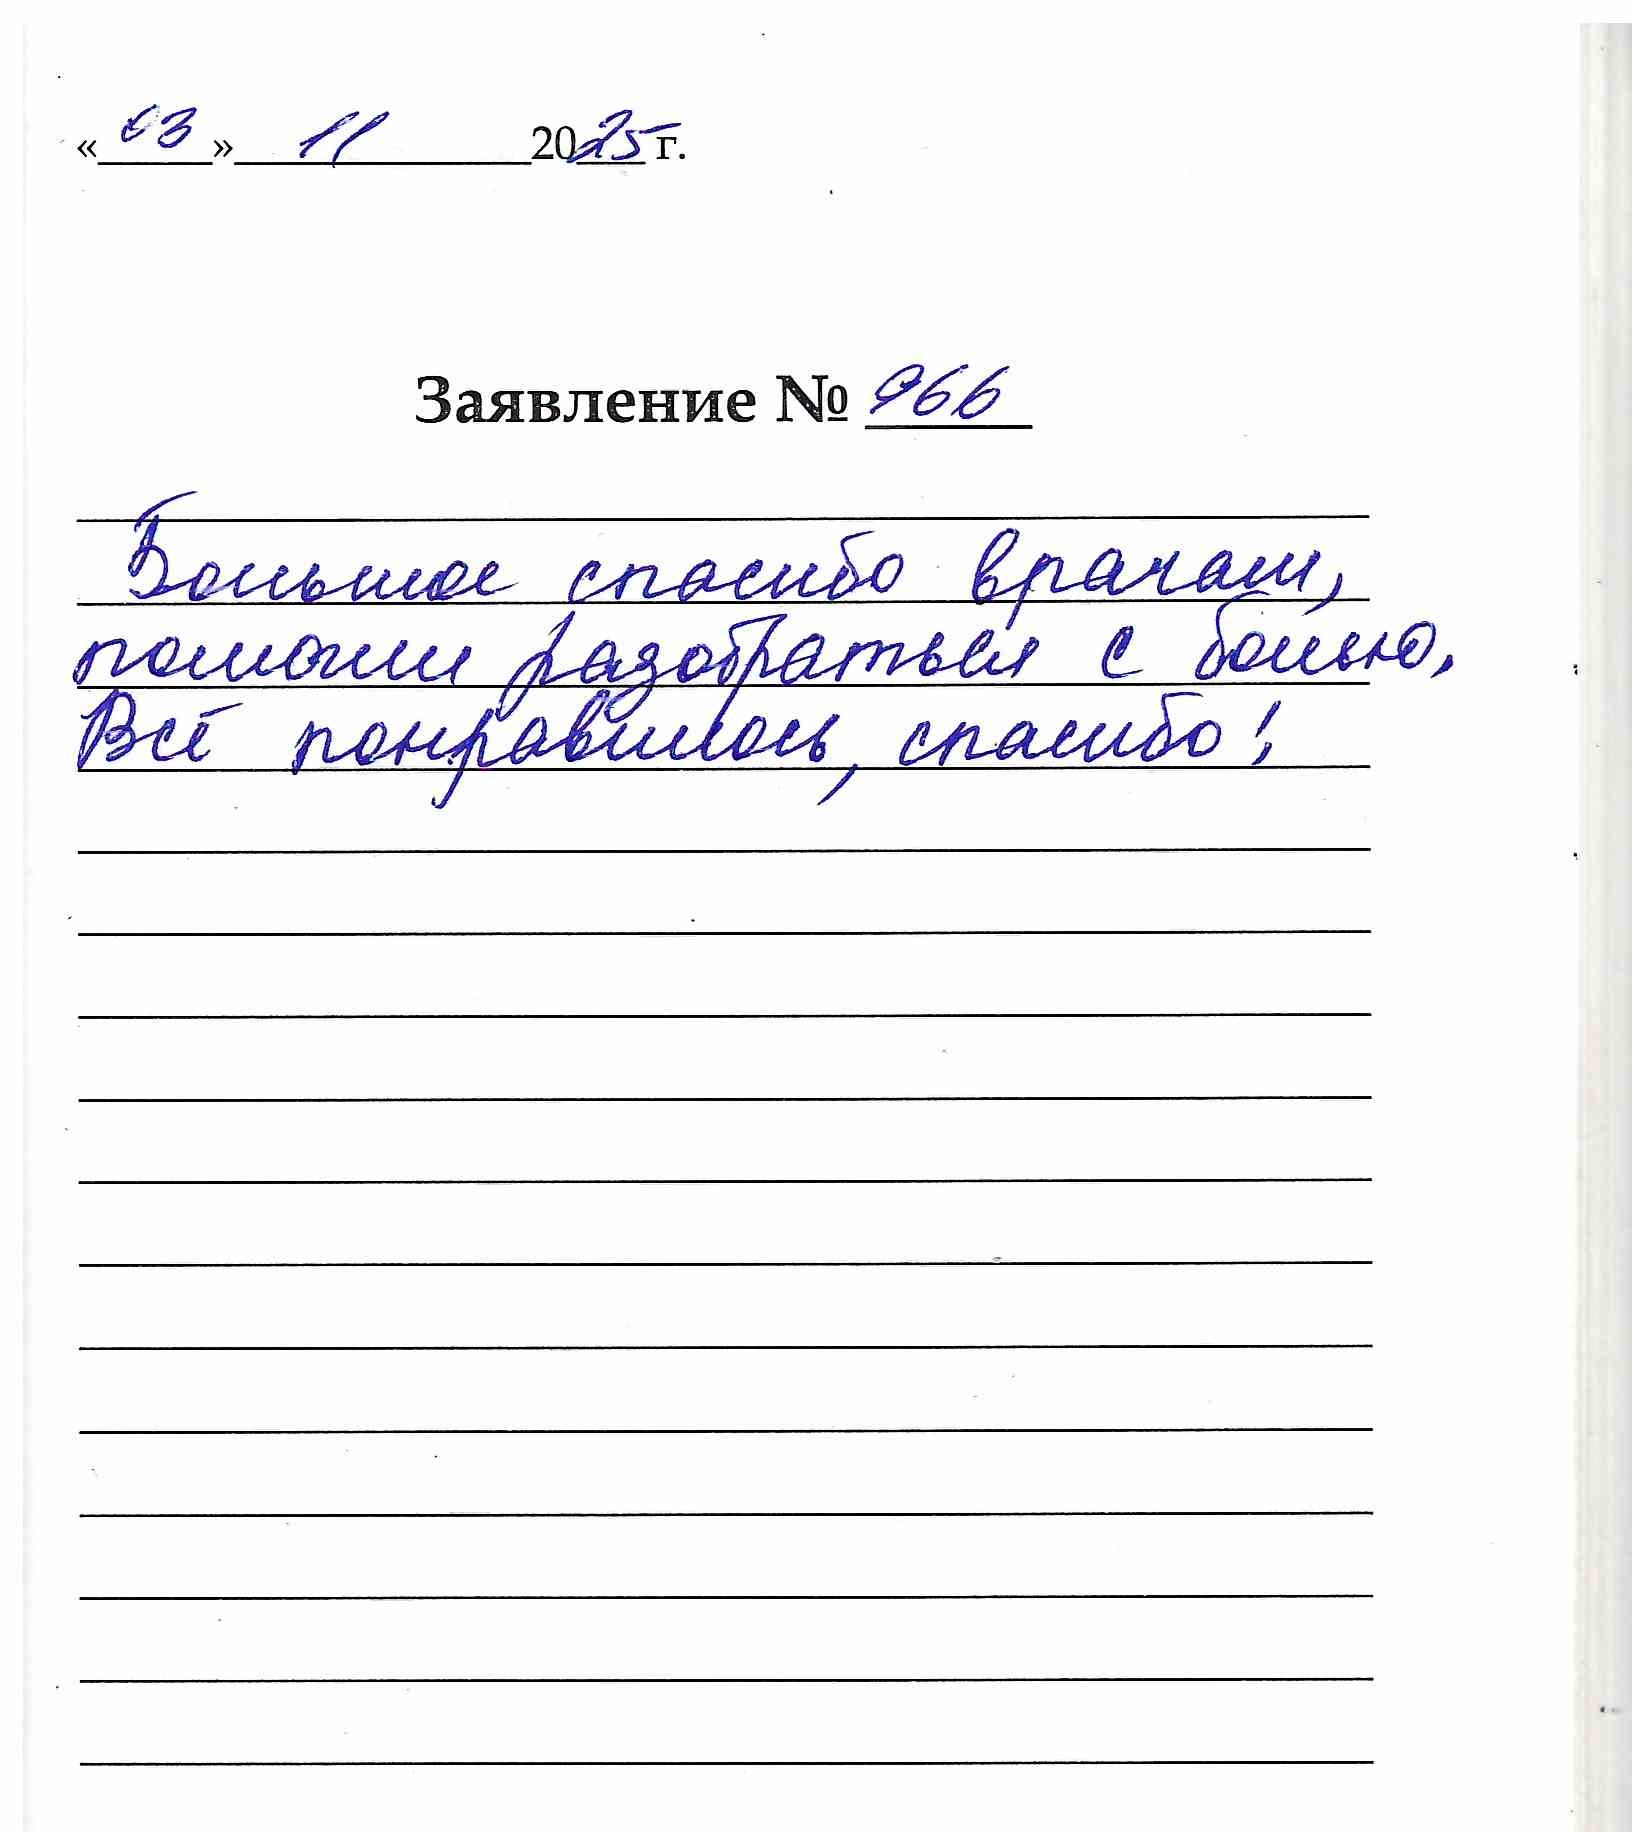 «03» 11 2025 г.
Заявление № 966
Большое спасибо врачам,
помогли разобраться с болью.
Всё понравилось, спасибо!